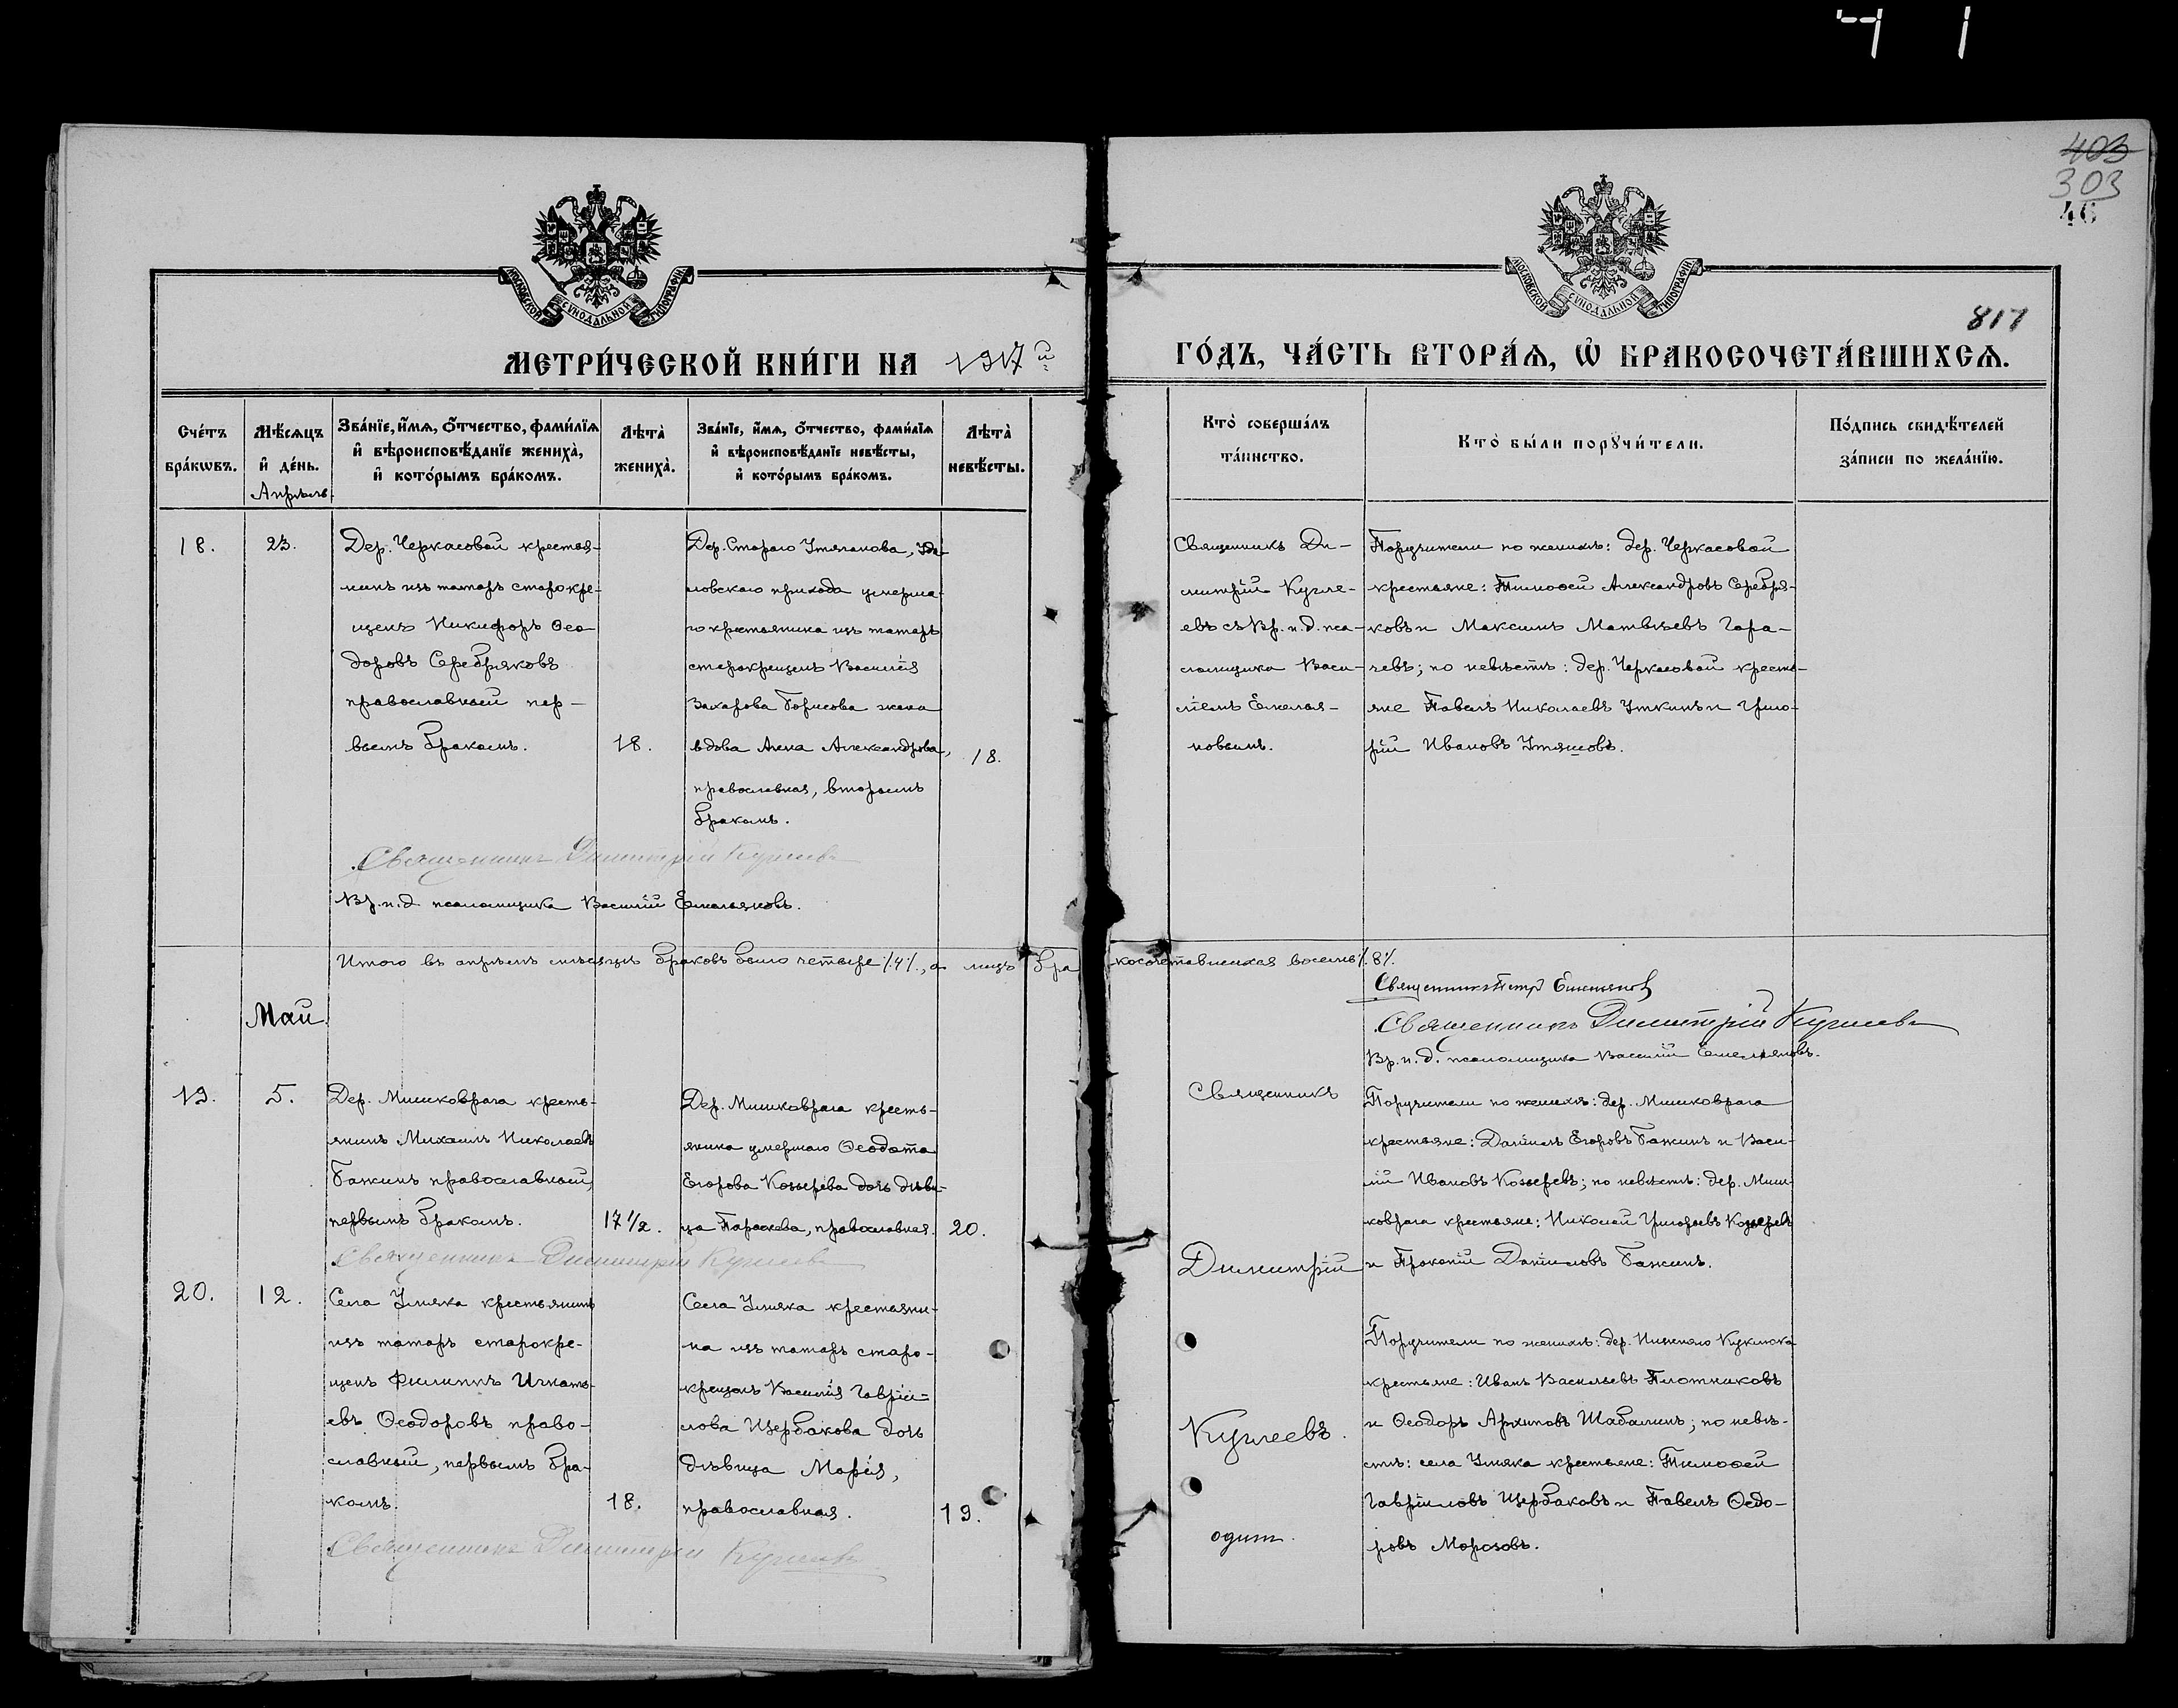 403
303
46
817
МОСКОВСКОЙ СѴНОДАЛЬНОЙ ТИПОГРАФІИ
МОСКОВСКОЙ СѴНОДАЛЬНОЙ ТИПОГРАФІИ
МЕТРИ́ЧЕСКОЙ КНИ́ГИ НА 1917й
ГО́ДЪ, ЧА́СТЬ ВТОРА́Ѧ, Ѽ БРАКОСОЧЕТА́ВШИХСѦ.
Сче́тъ
бра́кѡвъ.
Мѣ́сѧцъ
и҆ де́нь.
Апрѣль.
Зва́нїе, и҆́мѧ, ѻ҆́тчество, фами́лїѧ
и҆ вѣроисповѣ́данїе жениха̀,
и҆ кото́рымъ бра́комъ.
Лѣта̀
жениха̀.
Зва́нїе, и҆́мѧ, ѻ҆́тчество, фами́лїѧ
и҆ вѣроисповѣ́данїе невѣ́сты,
и҆ кото́рымъ бра́комъ.
Лѣта̀
невѣ́сты.
Кто̀ соверша́лъ
та́инство.
Кто̀ бы́ли порꙋчи́тели.
По́дпись свидѣ́телей
за́писи по жела́нїю.
18.
23.
Дер. Черкасовой крестья-
нинъ изъ татаръ старокре-
щенъ Никифоръ Ѳео-
доровъ Серебряковъ
православный пер-
вымъ бракомъ.
18.
Дер. Стараго
ловскаго прихода умерша-
го крестьянина изъ татаръ
старокрещенъ Василія
Захарова Борисова жена
вдова Анна Александрова,
православная, вторымъ
бракомъ.
18.
Священникъ Ди-
митрій Куглеевъ
евъ съ Вр. и. д. пса-
ломщика Васи-
ліемъ Емелья-
новымъ.
Поручители по женихѣ: дер. Черкасовой
крестьяне: Тимоѳей Александровъ Серебря-
ковъ и Максимъ Матвѣевъ Гора-
чевъ; по невѣстѣ: дер. Черкасовой кресть-
яне Павелъ Николаевъ Уткинъ и Григо-
рій Ивановъ Утяшовъ.
Священникъ Димитрій Куглеевъ
Вр. и. д. псаломщика Василій Емельяновъ.
Итого въ апрѣлѣ мѣсяцѣ браковъ было четыре /.4/., а лицъ бракосочетавшихся восемь /.8/.
Священникъ Петръ Емельяновъ
Священникъ Димитрій Куглеевъ
Вр. и. д. псаломщика Василій Емельяновъ.
Май
19.
5.
Дер. Мишковрага кресть-
янинъ Михаилъ Николаевъ
Бажинъ православный,
первымъ бракомъ.
17 1/2.
Дер. Мишковрага кресть-
янина умершаго Ѳеодота
Егорова Козырева дочь дѣви-
ца Параскева, православная.
20.
Священникъ
Поручители по женихѣ: дер. Мишковрага
крестьяне: Даніилъ Егоровъ Бажинъ и Васи-
лій Ивановъ Козыревъ; по невѣстѣ: дер. Миш-
коврага крестьяне: Николай Григорьевъ Козыревъ
и Прокопій Даніиловъ Бажинъ.
Священникъ Димитрій Куглеевъ
Димитрій
20.
12.
Села Умяка крестьянинъ
изъ татаръ старокре-
щенъ Филиппъ Игнать-
евъ Ѳеодоровъ право-
славный, первымъ бра-
комъ.
18.
Села Умяка крестьяни-
на изъ татаръ старо-
крещенъ Василія Гавріи-
лова Щербакова дочь
дѣвица Марія,
православная.
19.
Куглеевъ.
одинъ.
Поручители по женихѣ: дер. Нижняго
крестьяне: Иванъ Васильевъ Плотниковъ
и Ѳеодоръ Архиповъ Шабалинъ; по невѣ-
стѣ: села Умяка крестьяне: Тимоѳей
Гавріиловъ Щербаковъ и Павелъ Ѳедо-
ровъ Морозовъ.
Священникъ Димитрій Куглеевъ